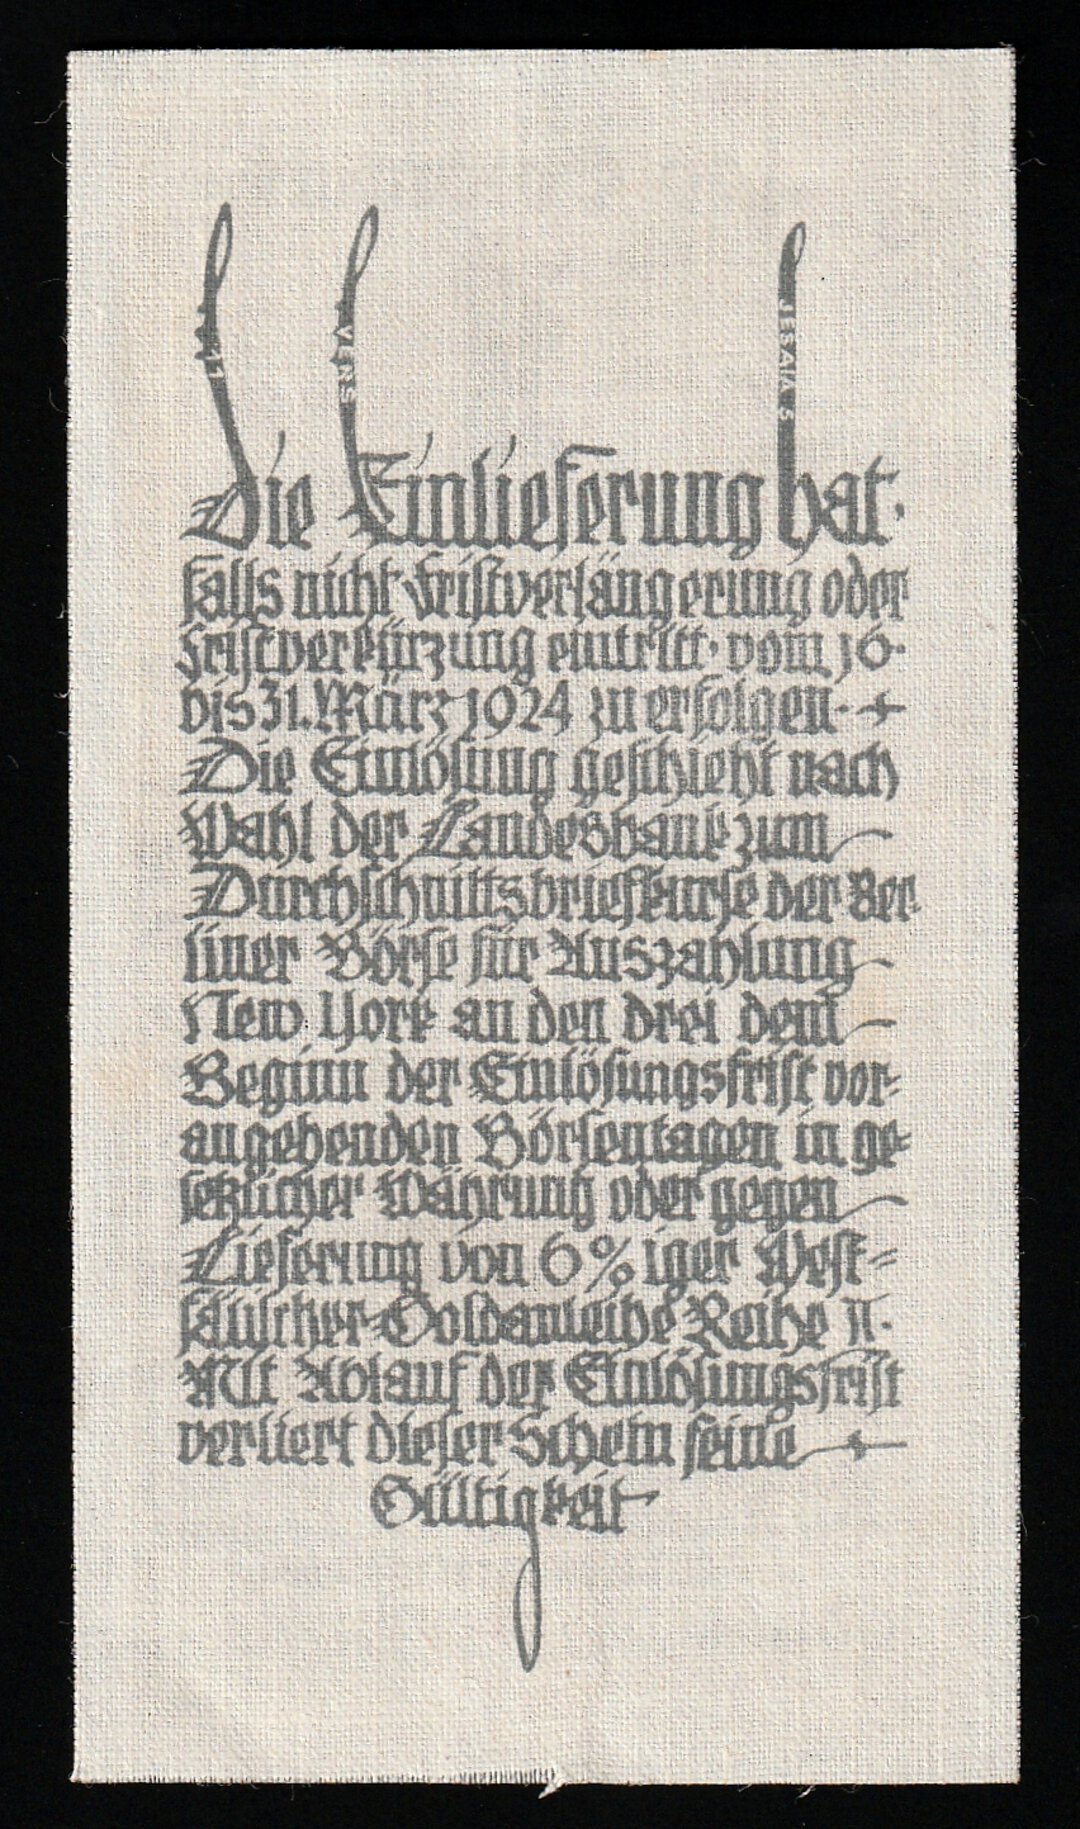 11
VERS
JESAIA 5
Die Einlieferung hat·
falls nicht Fristverlängerung oder
Fristverkürzung eintritt· vom 16·
bis 31. März 1924 zu erfolgen·
Die Einlösung geschieht nach
Wahl der Landesbank zum
Durchschnittsbriefkurse der Ber-
liner Börse für Auszahlung
New York an den drei dem
Beginn der Einlösungsfrist vor-
angehenden Börsentagen in ge-
setzlicher Währung oder gegen
Lieferung von 6%iger West-
fälischer Goldanleihe Reihe II·
Mit Ablauf der Einlösungsfrist
verliert dieser Schein seine
Gültigkeit